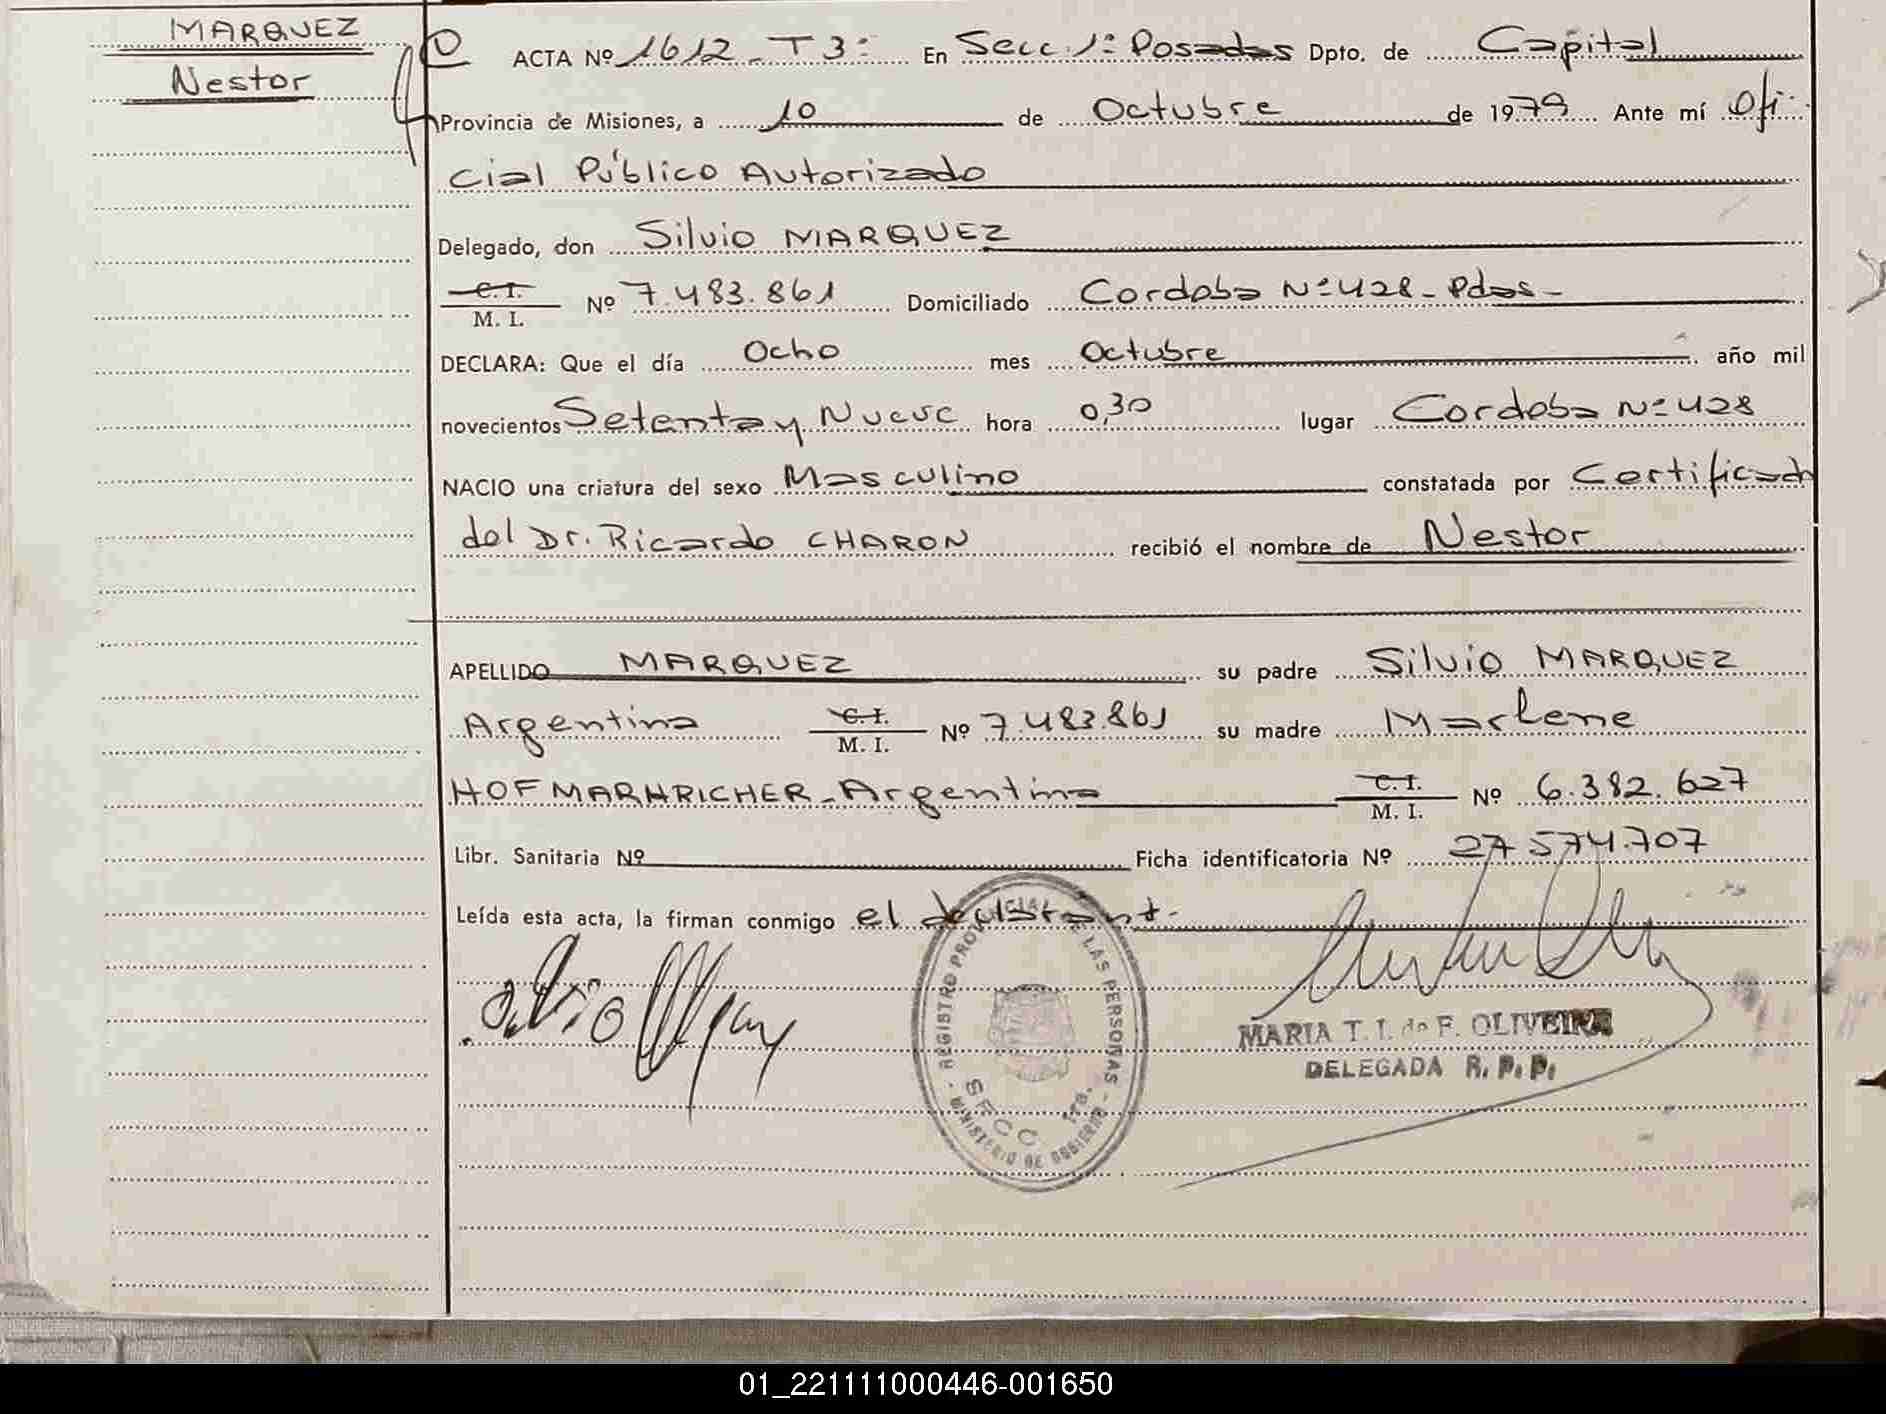 MARQUEZ
Nestor
ACTA Nº 1612 - T 3º En Secc. 1ª Posadas Dpto. de Capital
Provincia de Misiones, a 10 de Octubre de 1979 Ante mí Ofi
cial Público Autorizado
Delegado, don Silvio MARQUEZ
C. I.
M. I. Nº 7.483.861 Domiciliado Cordoba Nº 428 - Pdas -
DECLARA: Que el día Ocho mes Octubre año mil
novecientos Setenta y Nueve hora 0,30 lugar Cordoba Nº 428
NACIO una criatura del sexo Masculino constatada por Certificado
del Dr. Ricardo CHARON recibió el nombre de Nestor
APELLIDO MARQUEZ su padre Silvio MARQUEZ
Argentino C. I. M. I. Nº 7.483.861 su madre Marlene
HOFMARHRICHER - Argentina C. I. M. I. Nº 6.382.627
Libr. Sanitaria Nº Ficha identificatoria Nº 27 574.707
Leída esta acta, la firman conmigo el declarant.
REGISTRO PROVINCIAL DE LAS PERSONAS - MINISTERIO DE GOBIERNO -
SECC 1ra.
MARIA T. I. de F. OLIVEIRA
DELEGADA R. P. P.
01_221111000446-001650